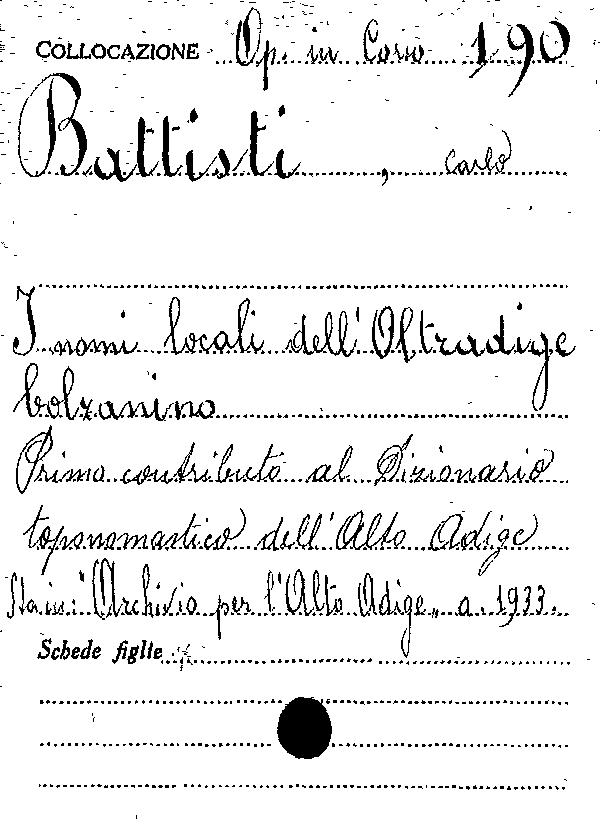 COLLOCAZIONE Op. in Corso 190
Battisti, Carlo
I nomi locali dell'Oltradige
bolzanino
Primo contributo al Dizionario
toponomastico dell'Alto Adige
Sta in: "Archivio per l'Alto Adige" a. 1933.
Schede figlie